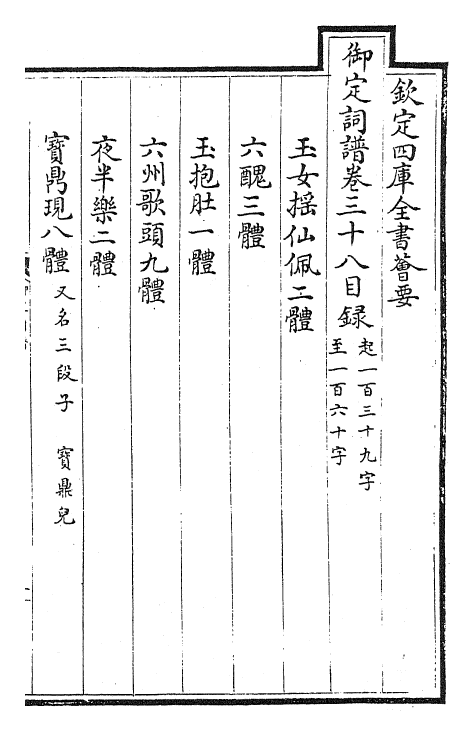 欽定四庫全書薈要
御定詞譜卷三十八目録 起一百三十九字
至一百六十字
玉女揺仙佩二體
六醜三體
玉抱肚一體
六州歌頭九體
夜半樂二體
寶鼎現八體 又名三段子 寶鼎兒